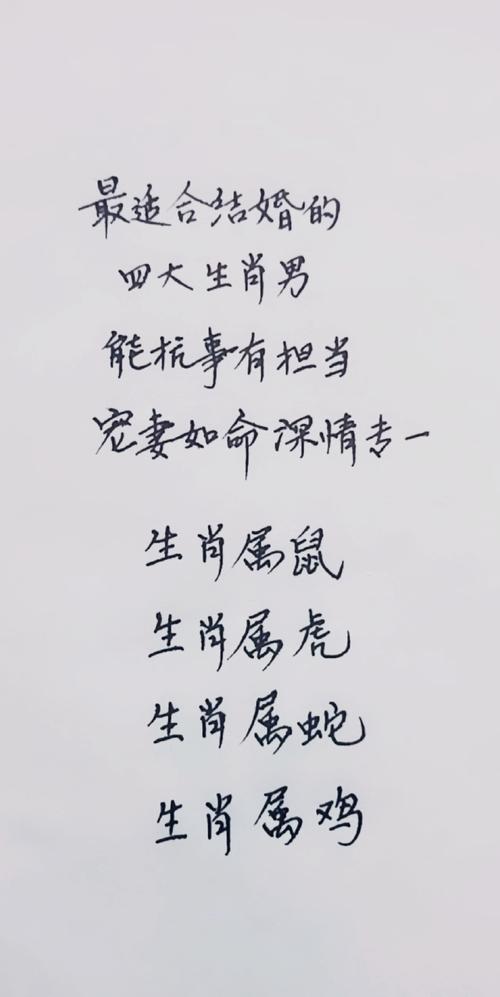 最适合结婚的
四大生肖男
能抗事有担当
宠妻如命深情专一
生肖属鼠
生肖属虎
生肖属蛇
生肖属鸡